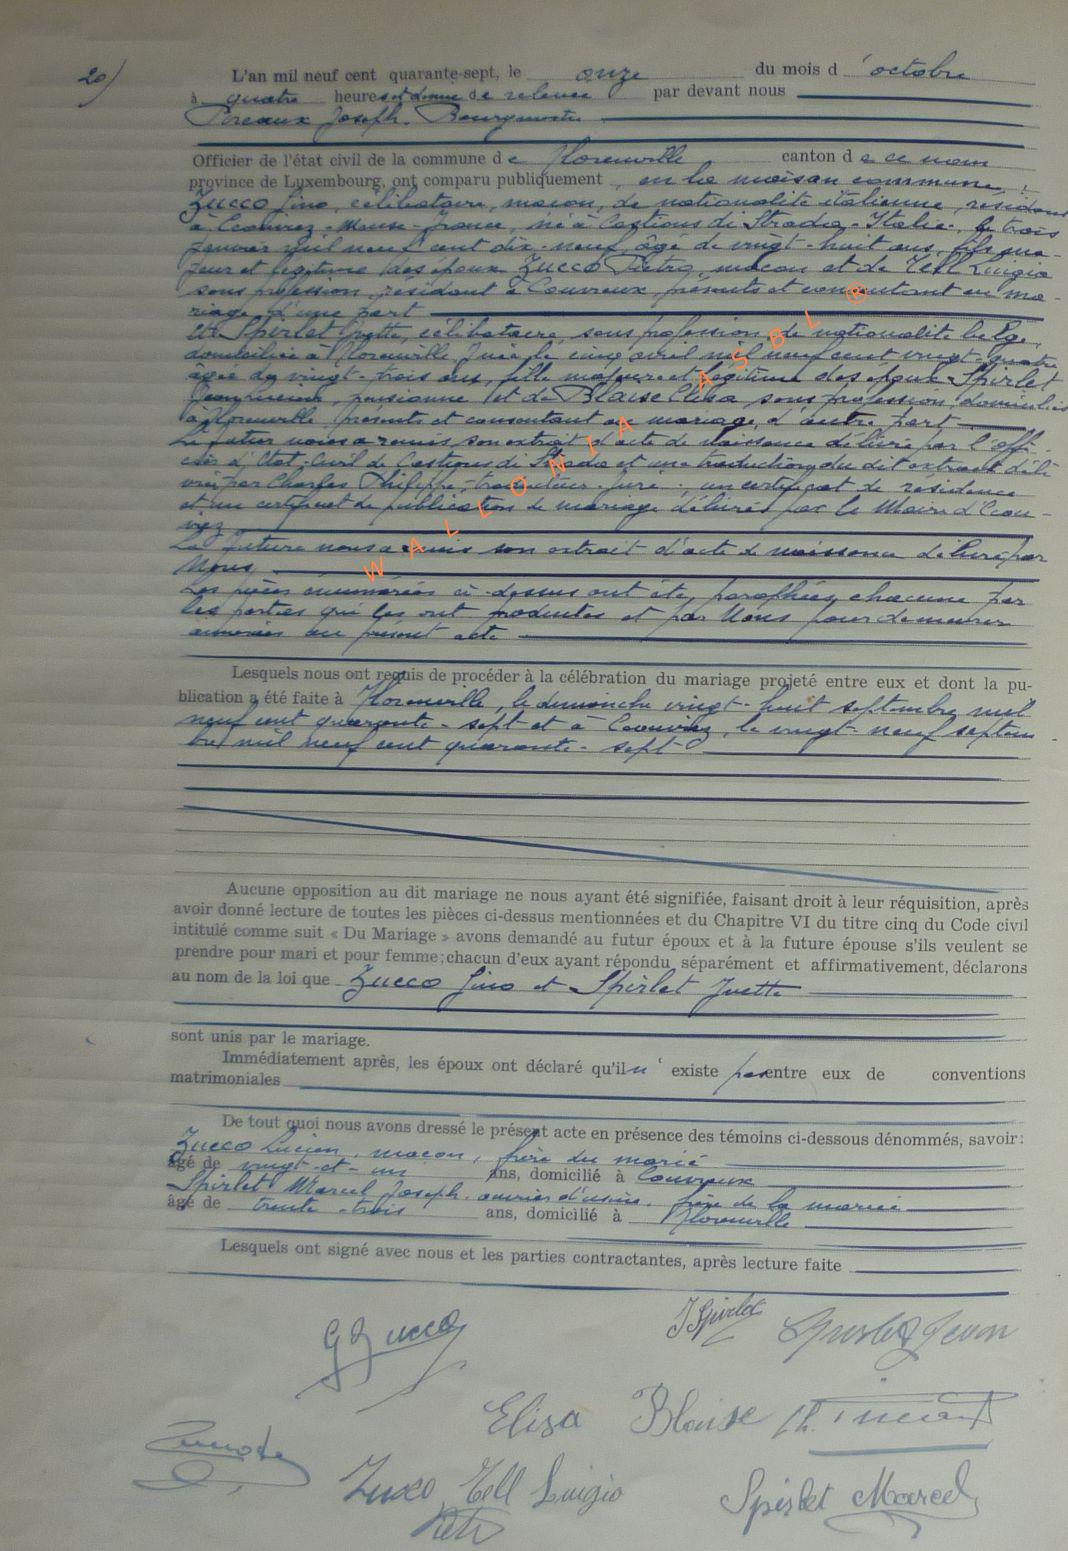 20)
L'an mil neuf cent quarante-sept, le onze du mois d'octobre
à quatre heures et demie de relevée par devant nous
Joseph, Bourgmestre
Officier de l'état civil de la commune de Florenville canton de ce nom
province de Luxembourg, ont comparu publiquement, en la maison commune :
Zucco Gino, célibataire, maçon, de nationalité italienne, résidant
à Ecouviez - Meuse - France, né à Castions di Strada - Italie, le trois
janvier mil neuf cent dix-neuf, âgé de vingt-huit ans, fils ma-
jeur et légitime des époux Zucco Pietro, maçon et de Tell Luigia
sans profession, résidant à Couvreux, présents et consentant au ma-
riage, d'une part
Et Spirlet Yvette, célibataire, sans profession, de nationalité belge,
domiciliée à Florenville, y née le cinq avril mil neuf cent vingt-quatre
âgée de vingt-trois ans, fille majeure et légitime des époux Spirlet
pensionné et de Blaise Elisa sans profession, domiciliés
à Florenville présents et consentant au mariage, d'autre part
Le futur nous a remis son extrait d'acte de naissance délivré par l'offi-
cier d'Etat-Civil de Castions di Strada et une traduction du dit extrait déli-
vrée par Charles Philippe, traducteur-juré, un certificat de résidence
et un certificat de publication de mariage délivrés par le Maire d'Ecou-
viez
La future nous a remis son extrait d'acte de naissance délivré par
Nous.
Les pièces énumérées ci-dessus ont été paraphées chacune par
les parties qui les ont produites et par Nous pour demeurer
annexées au présent acte
Lesquels nous ont requis de procéder à la célébration du mariage projeté entre eux et dont la pu-
blication a été faite à Florenville, le dimanche vingt-huit septembre mil
neuf cent quarante-sept et à Ecouviez, le vingt-neuf septem-
bre mil neuf cent quarante-sept
Aucune opposition au dit mariage ne nous ayant été signifiée, faisant droit à leur réquisition, après
avoir donné lecture de toutes les pièces ci-dessus mentionnées et du Chapitre VI du titre cinq du Code civil
intitulé comme suit « Du Mariage » avons demandé au futur époux et à la future épouse s'ils veulent se
prendre pour mari et pour femme; chacun d'eux ayant répondu séparément et affirmativement, déclarons
au nom de la loi que Zucco Gino et Spirlet Yvette
sont unis par le mariage.
Immédiatement après, les époux ont déclaré qu'il n'existe pas entre eux de conventions
matrimoniales
De tout quoi nous avons dressé le présent acte en présence des témoins ci-dessous dénommés, savoir:
Zucco Lucien, maçon, frère du marié
âgé de vingt-et-un ans, domicilié à Couvreux
Spirlet Marcel Joseph, ouvrier d'usine, frère de la mariée
âgé de trente-trois ans, domicilié à Florenville
Lesquels ont signé avec nous et les parties contractantes, après lecture faite
G Zucco
Y Spirlet
Spirlet Jean
Elisa Blaise
Zucco Tell Luigia
Spirlet Marcel
WALLONIA ASBL ®